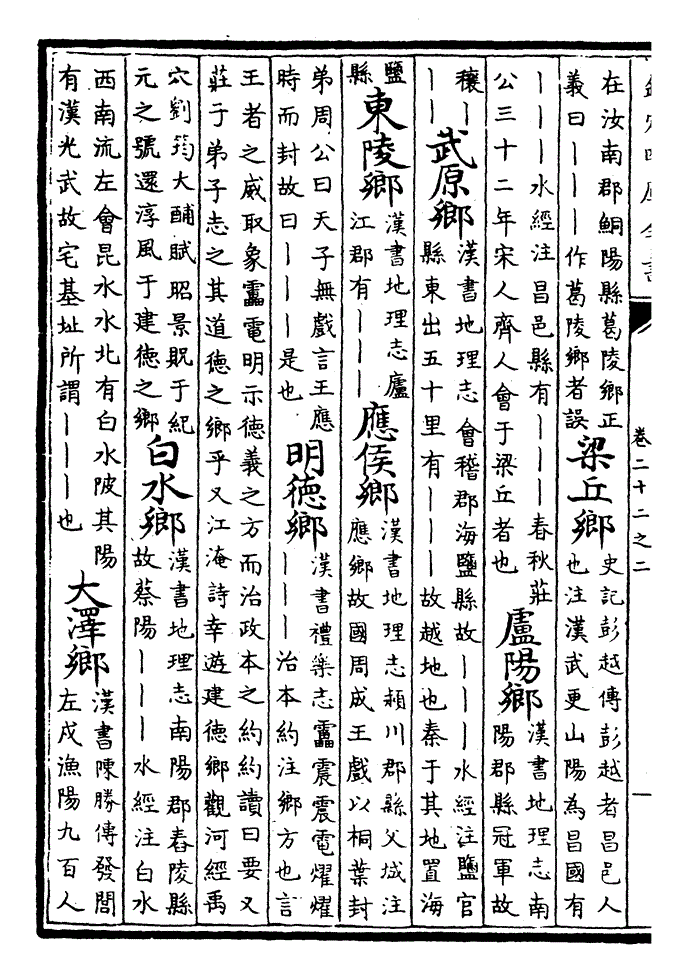 欽定四庫全書
卷二十二之二
一
在汝南郡鮦陽縣葛陵鄉正
義曰｜｜｜作葛陵鄉者誤
梁丘鄉
史記彭越傳彭越者昌邑人
也注漢武更山陽為昌國有
｜｜｜水經注昌邑縣有｜｜｜春秋莊
公三十二年宋人齊人會于梁丘者也
盧陽鄉
漢書地理志南
陽郡縣冠軍故
穰｜
｜｜
武原鄉
漢書地理志會稽郡海鹽縣故｜｜｜水經注鹽官
縣東出五十里有｜｜｜故越地也秦于其地置海
鹽
縣
東陵鄉
漢書地理志廬
江郡有｜｜｜
應侯鄉
漢書地理志潁川郡縣父城注
應鄉故國周成王戲以桐葉封
弟周公曰天子無戲言王應
時而封故曰｜｜｜是也
明德鄉
漢書禮樂志靁震震電燿燿
｜｜｜治本約注鄉方也言
王者之威取象靁電明示德義之方而治政本之約約讀曰要又
莊于弟子志之其道德之鄉乎又江淹詩幸遊建德鄉觀河經禹
穴劉筠大酺賦昭景貺于紀
元之號還淳風于建德之鄉
白水鄉
漢書地理志南陽郡舂陵縣
故蔡陽｜｜｜水經注白水
西南流左會昆水水北有白水陂其陽
有漢光武故宅基址所謂｜｜｜也
大澤鄉
漢書陳勝傳發閭
左戍漁陽九百人